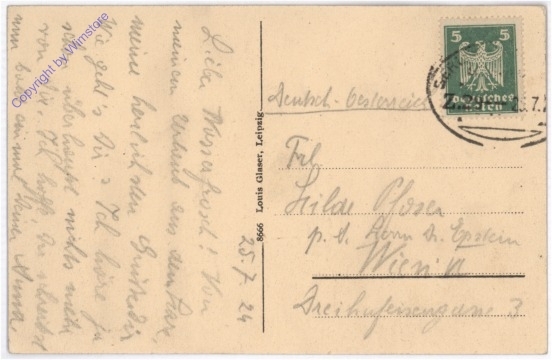 Liebe Wasserfrosch! Von
meinem Urlaub aus dem Harz
meine herzlichsten Grüße dir
Wie geht's Dir? Ich höre ja
schon überhaupt nichts mehr
von Dir. Ich hoffe Du schreibst
nun bald einmal Deine Anna
25.7.24
8666 Louis Glaser, Leipzig.
Deutsch-Oesterreich
Frl.
Hilde Ploser
p. A. Herrn Dr. Epstein
Wien II
Dreihufeisengasse 3
5 5
Deutsches
Reich
Copyright by Wimstore